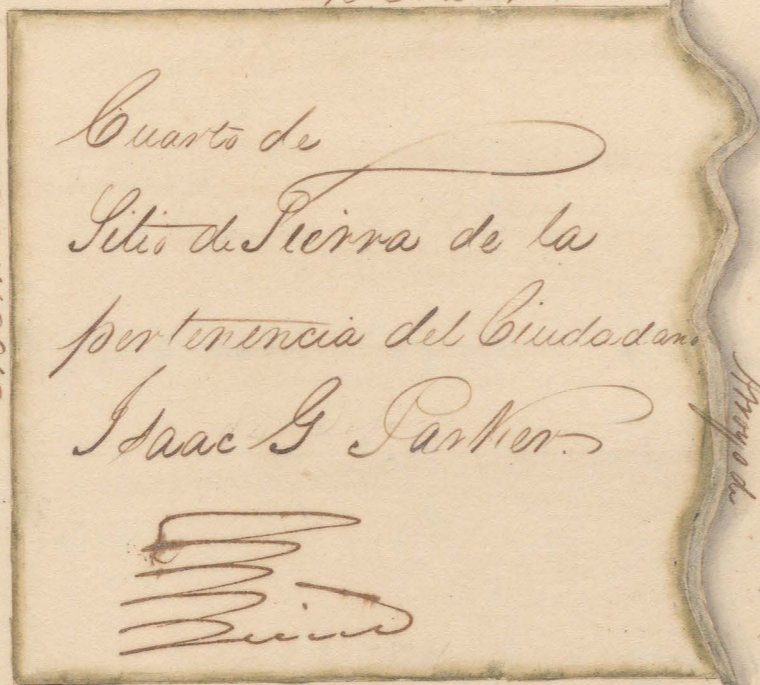 Cuarto de
Sitio de Tierra de la
pertenencia del Ciudadano
Isaac G Parker
Arroyo de